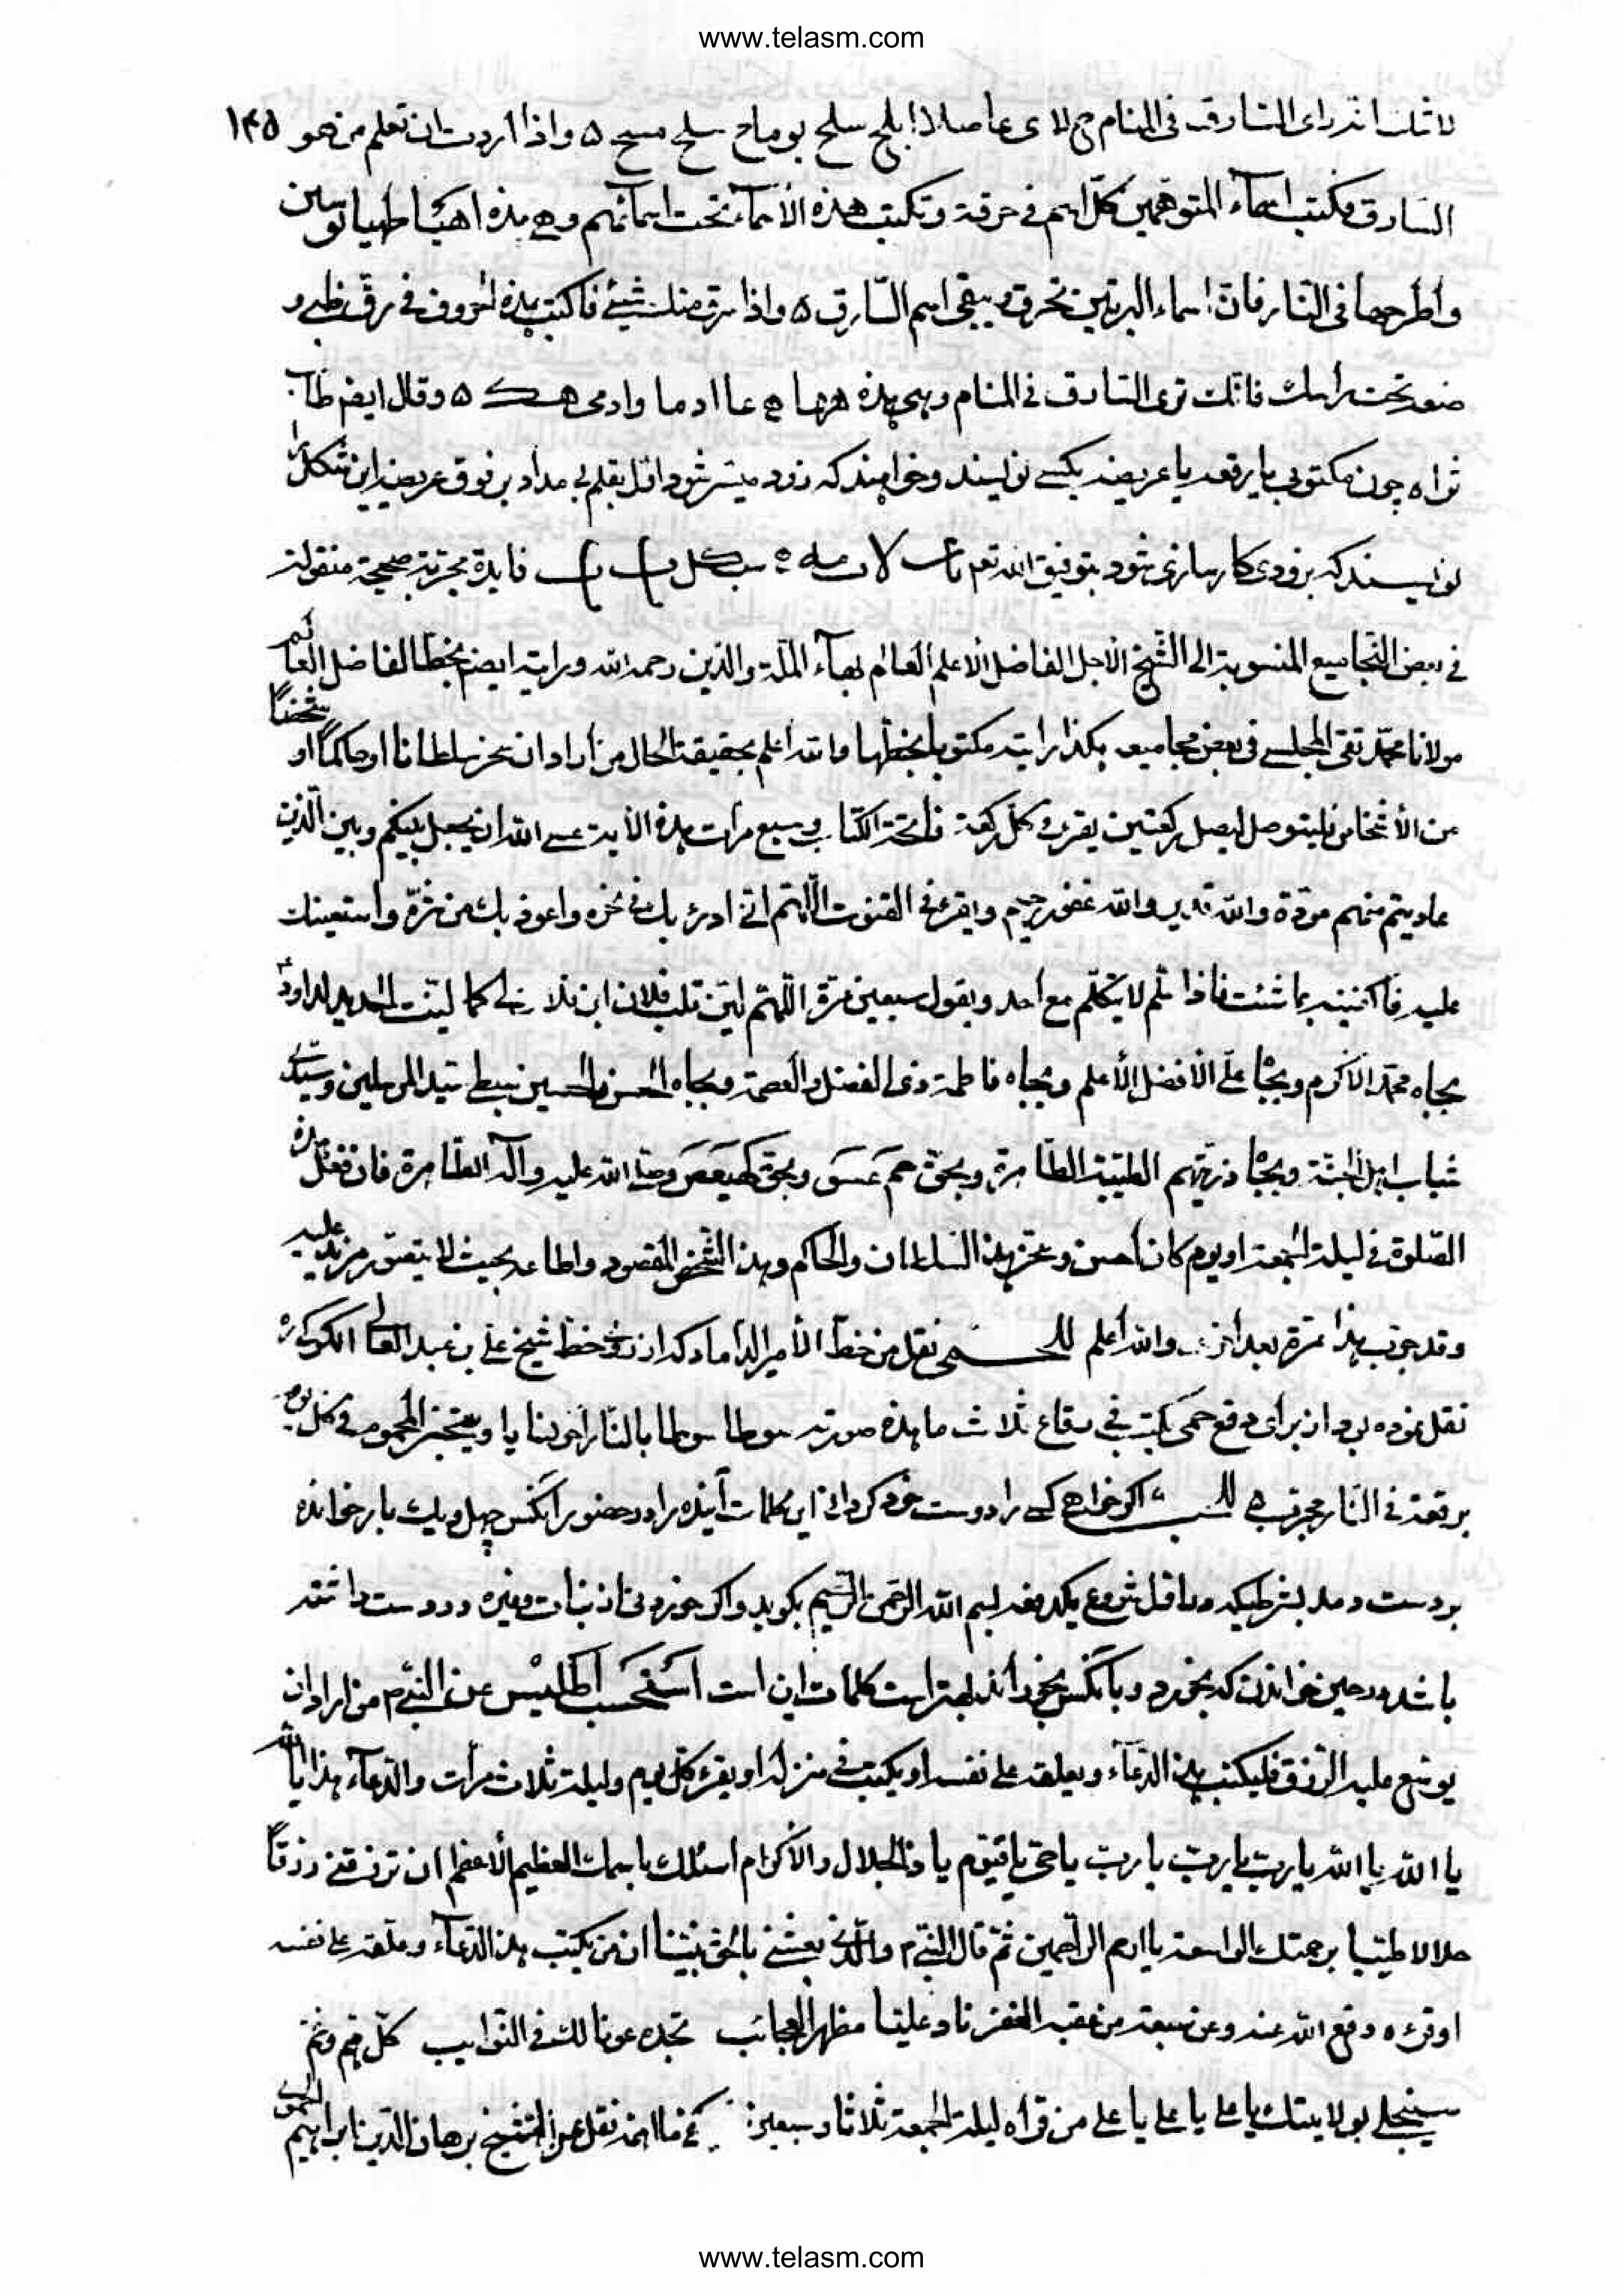 www.telasm.com
لا شك انه راى السارق فى المنام سلح يوماح سلح مسيح ۵ واذا اردت ان تعلم من هو ۱۴۵
السارق فكتب اسمآء المتوهمين كل اسم فى حرقة وتكتب هذه الأسمآء تحت اسمائهم وهى هذه اهيا طهيا
واطرحها فى النار فان اسماء البريئين تحرق ويبقى اسم السارق ۵ واذا سرق منك شيئ فاكتب هذه الحروف فى رق ظبى و
ضعه تحت راسك فانك ترى السارق فى المنام وهى هذه هرها عا ادما وادمى ۵ وقال ايضا طاب
ثراه چون مكتوبى يا رقعه يا عريضه بكسى نويسند وخواهند كه زود ميسر شود اول بقلم بى مداد بر فوق عريضه اين شكل را
نويسند كه بزودى كار سازى شود بتوفيق الله تعم فايدة مجربة صحيحة منقولة
فى بعض المجاميع المنسوبة الى الشيخ الأجل الفاضل الأعلم العام بهآء الملة والدين رحمه الله ورايته ايضا بخط الفاضل العالم
مولانا محمد تقى المجلسى فى بعض مجاميعه هكذا رايته مكتوبا بخطها والله اعلم بحقيقة الحال من اراد ان يسخر سلطانا او حاكما او شخصا
من الأشخاص فليتوصل ليصل ركعتين يقرء فى كل ركعة فاتحة الكتاب وسبع مرات هذه الأية عسى الله ان يجعل بينكم وبين الذين
عاديتم منهم مودة والله قدير والله غفور رحيم ويقرء فى القنوت اللهم انى ادرء بك فى نحره واعوذ بك من شره واستعينك
عليه فاكفنيه بما شئت فاذا سلم لا يتكلم مع احد ويقول سبعين مرة اللهم لين قلب فلان ابن فلان لى كما لينت الحديد لداود
بجاه محمد الأكرم وبجاه على الأفضل الأعلم وبجاه فاطمة ذى الفضل والعصمة وبجاه الحسن والحسين سبطى سيد المرسلين وسيدى
شباب اهل الجنة وبجاه ذريتهم الطيبة الطاهرة وبحق حم عسق وبحق كهيعص وصلى الله عليه وآله الطاهرة فان فعل هذه
الصلوة فى ليلة الجمعة او يوم كان احسن وعز هذا السلطان والحاكم وهذا الشخص المقصود واطاعه بحيث لا يتصور مزيد عليه
وقد جرب هذا مرة بعد اخرى والله اعلم للحمى نقل من خط الأمير الداماد كه از خط شيخ على بن عبد العالى الكركى ره
نقل نموده بود از براى دفع حمى يكتب فى رقاع ثلاث ما هذه صورته سوطا سوطا بالنار ويتبخر المحموم فى كل يوم
برقعة فى النار مجرب اكر خواهى كه كسى را دوست خود كردانى اين كلمات آينده را در حضور آنكس چهل و يك بار خوانده
بر دست دمد بشرطيكه در اول شروع يكدفعه بسم الله الرحمن الرحيم بكويد واكر خوردنى از نبات وغيره در دست داشته
باشد در حين خواندن كه بخورد وبآنكس بخوراند بهتر است كلمات اين است عن النبى م من اراد ان
يوسع عليه الرزق فليكتب هذا الدعآء ويعلقه على نفسه او يكتب فى منزله او يقرء كل يوم وليلة ثلاث مرات والدعآء هذا يا الله
يا الله يا الله يا رب يا رب يا رب يا حى يا قيوم يا ذا الجلال والأكرام اسئلك باسمك العظيم الأعظم ان ترزقنى رزقا
حلالا طيبا برحمتك الواسعة يا ارحم الراحمين ثم قال النبى م والذى بعثنى بالحق نبيا ان من يكتب هذا الدعآء وعلقه على نفسه
او قرءه دفع الله عنه وعن سبعة من عقبه الفقر ناد عليا مظهر العجائب تجده عونا لك فى النوايب كل هم وغم
سينجلى بولايتك يا على يا على يا على من قراه ليلة الجمعة ثلاثا وسبعين نقل عن الشيخ برهان الدين ابراهيم الحموى
www.telasm.com